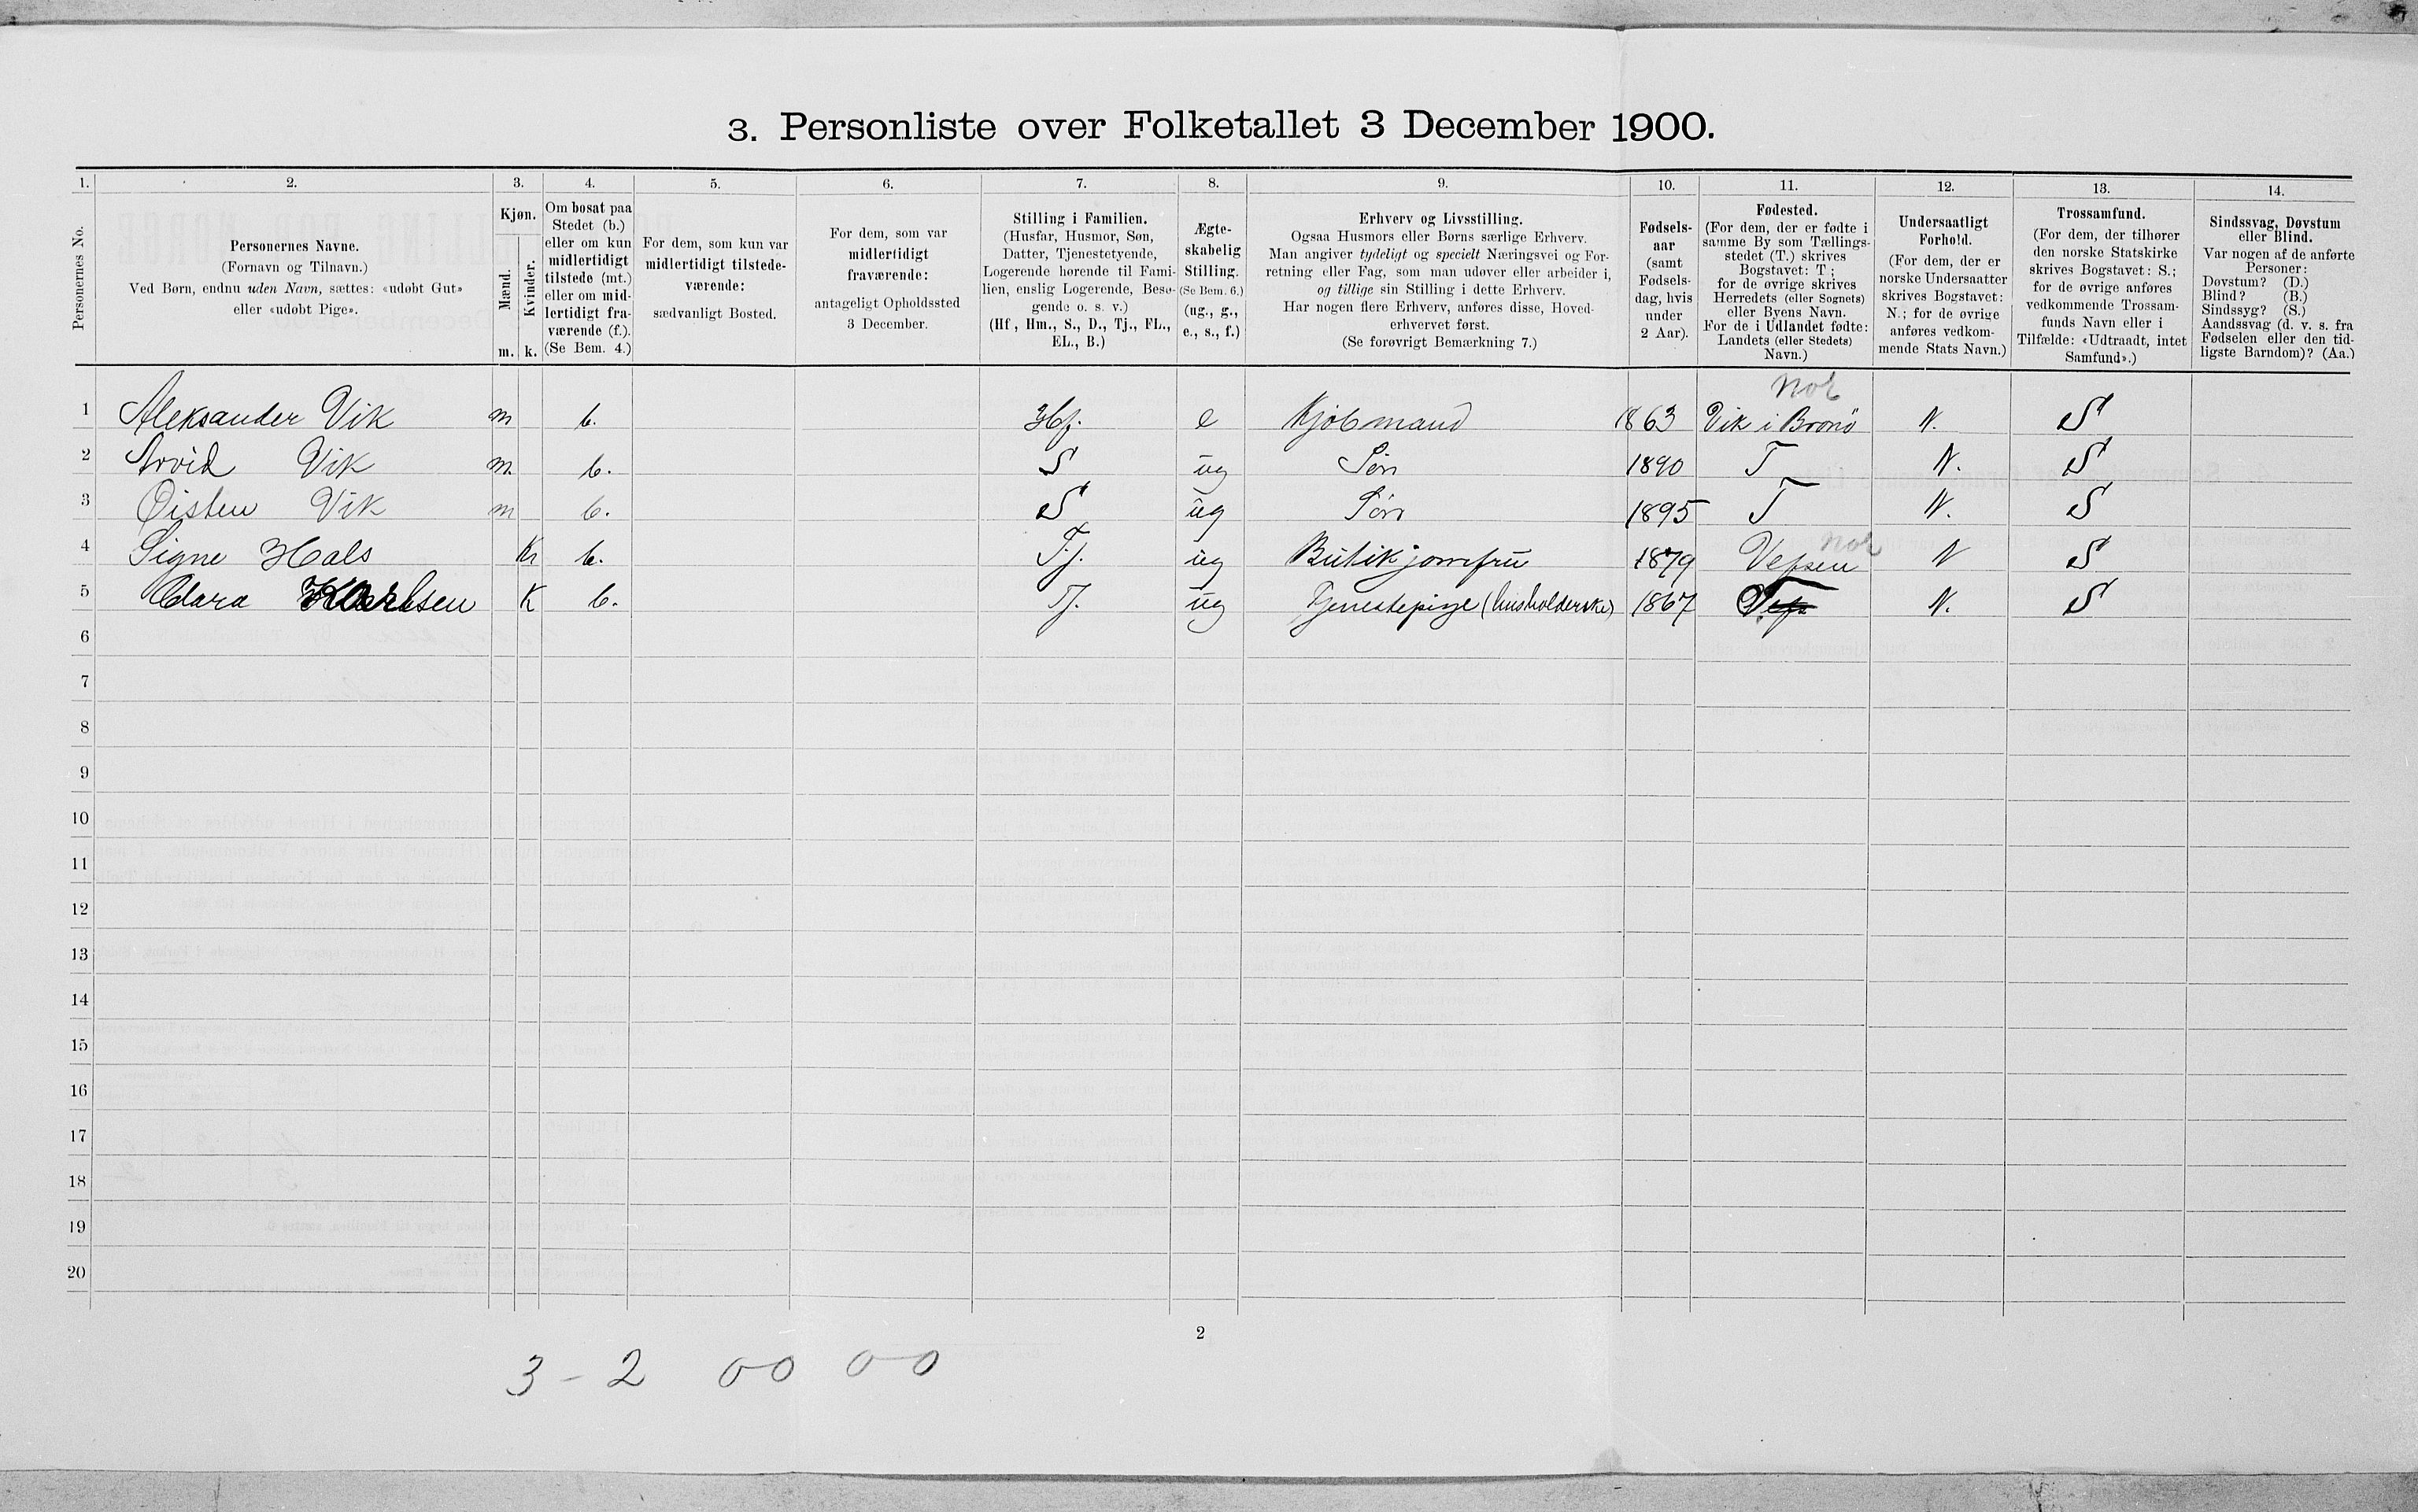 3. Personliste over Folketallet 3 December 1900.
1. 2. 3. 4. 5. 6. 7. 8. 9. 10. 11. 12. 13. 14.
Personernes No.
Personernes Navne.
(Fornavn og Tilnavn.)
Ved Børn, endnu uden Navn, sættes: «udøbt Gut»
eller «udøbt Pige».
Kjøn.
Mænd.
Kvinder.
m. k.
Om bosat paa
Stedet (b.)
eller om kun
midlertidigt
tilstede (mt.)
eller om mid-
lertidigt fra-
værende (f.).
(Se Bem. 4.)
For dem, som kun var
midlertidigt tilstede-
værende:
sædvanligt Bosted.
For dem, som var
midlertidigt
fraværende:
antageligt Opholdssted
3 December.
Stilling i Familien.
(Husfar, Husmor, Søn,
Datter, Tjenestetyende,
Logerende hørende til Fami-
lien, enslig Logerende, Besø-
gende o. s. v.)
(Hf, Hm., S., D., Tj., FL.,
EL., B.)
Ægte-
skabelig
Stilling.
(Se Bem. 6.)
(ug., g.,
e., s., f.)
Erhverv og Livsstilling.
Ogsaa Husmors eller Børns særlige Erhverv.
Man angiver tydeligt og specielt Næringsvei og For-
retning eller Fag, som man udøver eller arbeider i,
og tillige sin Stilling i dette Erhverv.
Har nogen flere Erhverv, anføres disse, Hoved-
erhvervet først.
(Se forøvrigt Bemærkning 7.)
Fødsels-
aar
(samt
Fødsels-
dag, hvis
under
2 Aar).
Fødested.
(For dem, der er fødte i
samme By som Tællings-
stedet (T.) skrives
Bogstavet: T;
for de øvrige skrives
Herredets (eller Sognets)
eller Byens Navn.
For de i Udlandet fødte:
Landets (eller Stedets)
Navn.)
Undersaatligt
Forhold.
(For dem, der er
norske Undersaatter
skrives Bogstavet:
N.; for de øvrige
anføres vedkom-
mende Stats Navn.)
Trossamfund.
(For dem, der tilhører
den norske Statskirke
skrives Bogstavet: S.;
for de øvrige anføres
vedkommende Trossam-
funds Navn eller i
Tilfælde: «Udtraadt, intet
Samfund».)
Sindssvag, Døvstum
eller Blind.
Var nogen af de anførte
Personer:
Døvstum? (D.)
Blind? (B.)
Sindssyg? (S.)
Aandssvag (d. v. s. fra
Fødselen eller den tid-
ligste Barndom)? (Aa.)
Nol
1 Aleksander Vik m b. Hf. e Kjøbmand 1863 Vik i Brønø N. S
2 Arvid Vik m b. S ug Søn 1890 T N. S
3 Øisten Vik m b. S ug Søn 1895 T N. S
Nol
4 Signe Hals K b. Tj. ug Butikjomfru 1879 Vefsen N S
5 Clara Karlsen K b. Tj. ug Tjenestepige (husholderske) 1867 T N. S
6
7
8
9
10
11
12
13
14
15
16
17
18
19
20
2
3 - 2 0-0 0-0